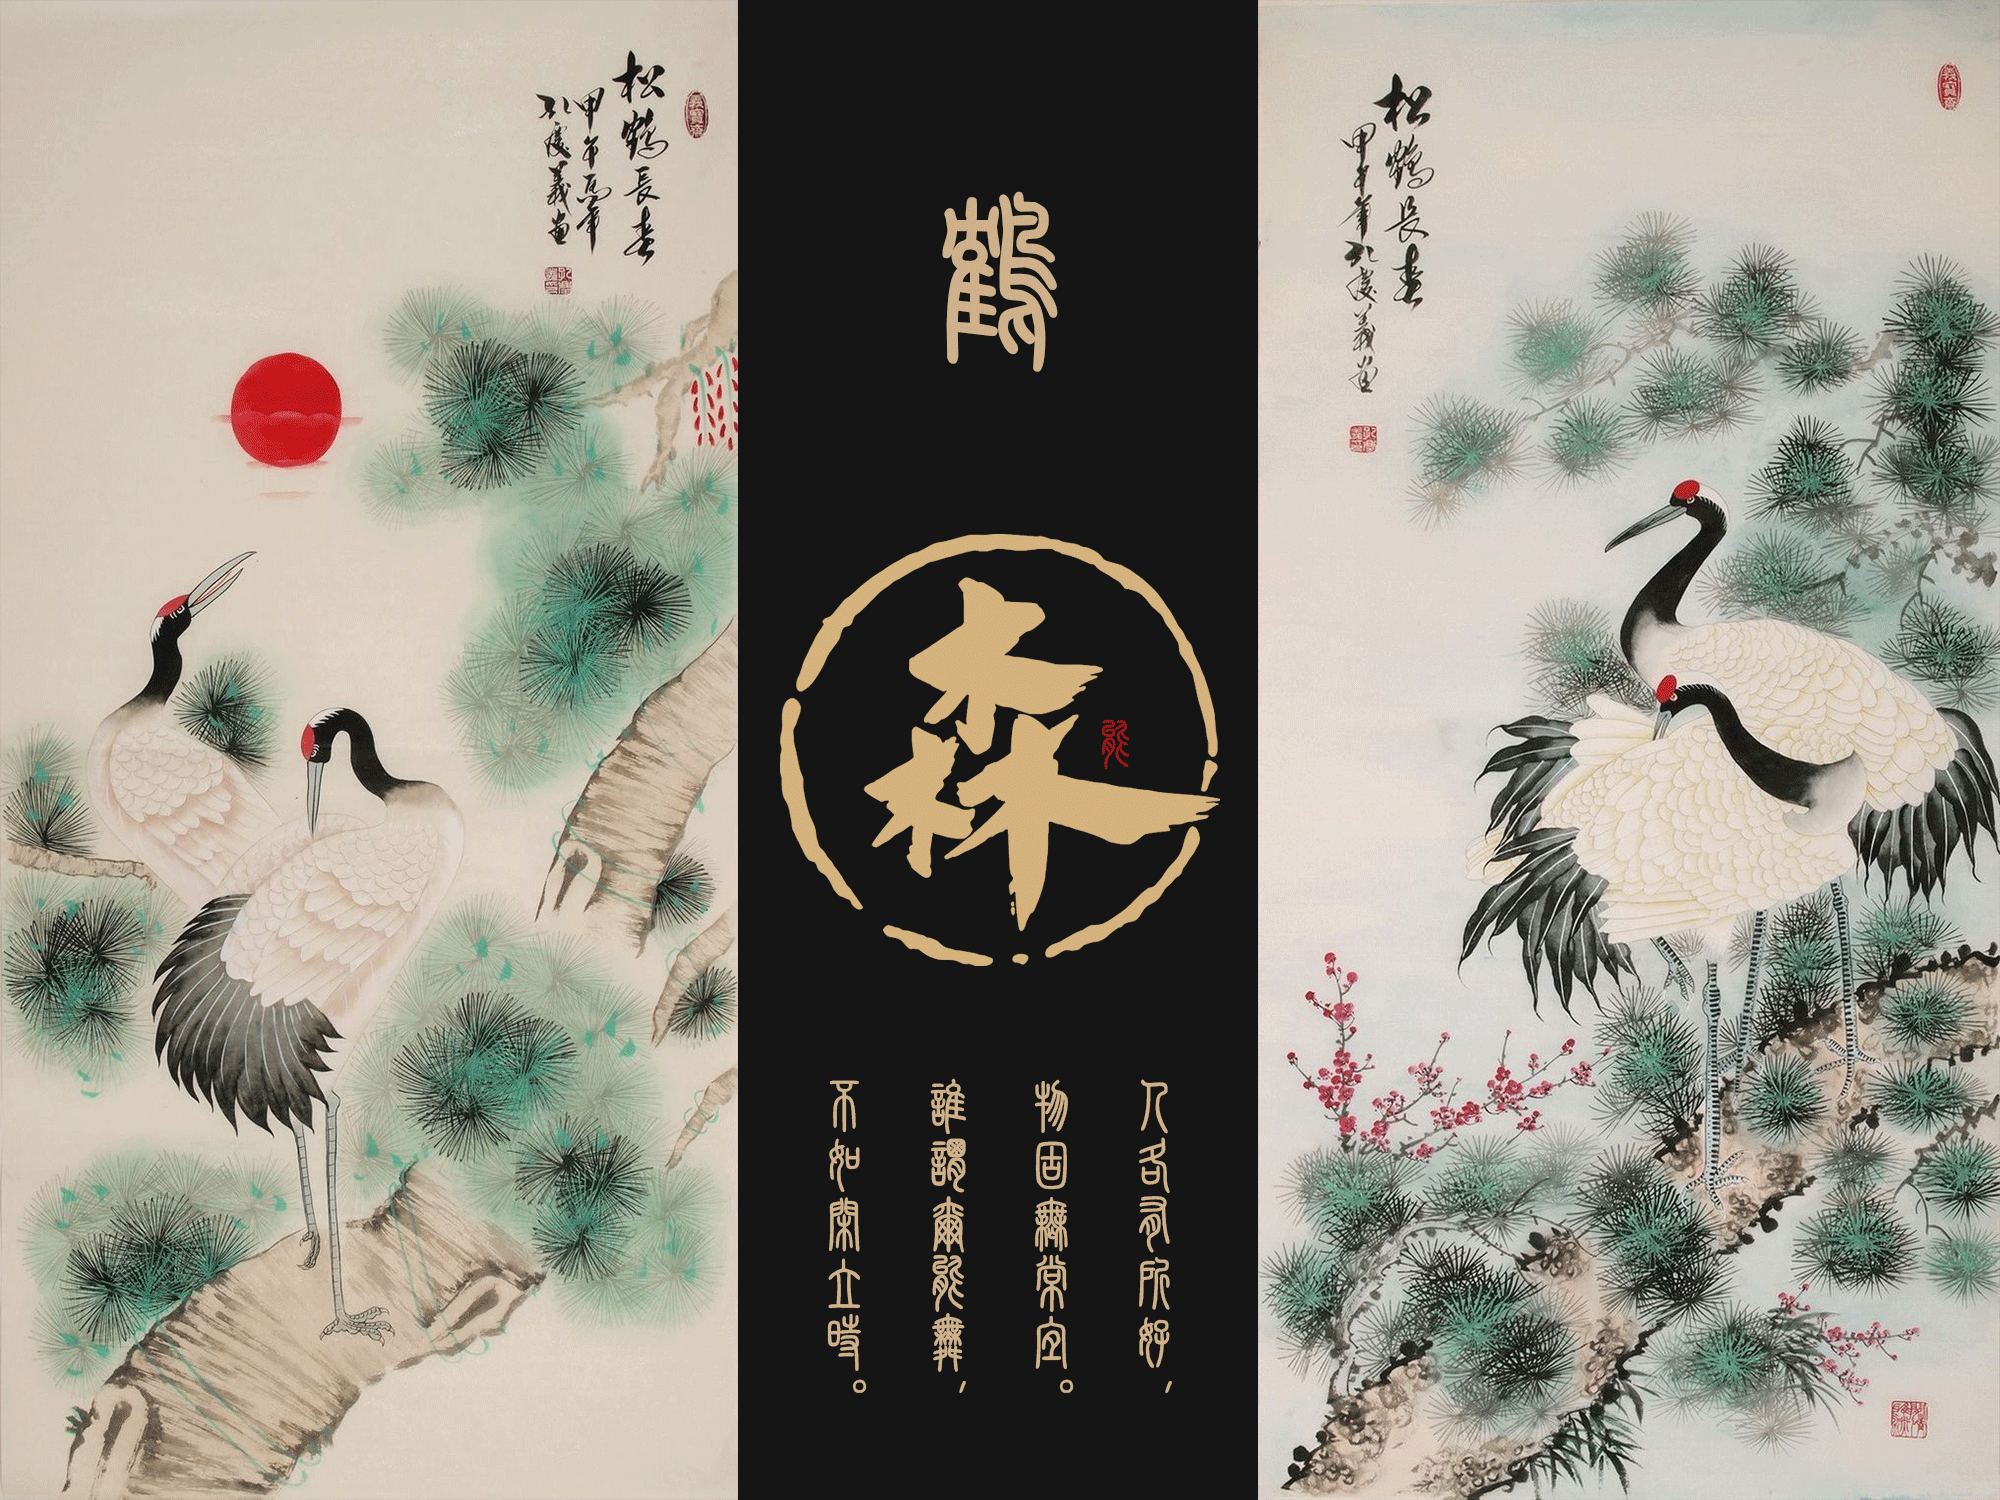 松鶴長春
甲午馬年
孔慶義画
鶴
森
能
人各有所好,
物固無常宜。
誰謂爾能舞,
不如閑立時。
松鶴長春
甲午年孔慶義画